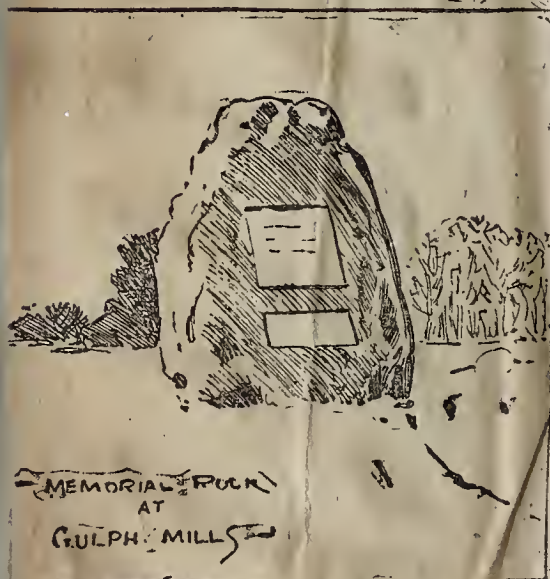 MEMORIAL ROCK
AT
GULPH MILLS